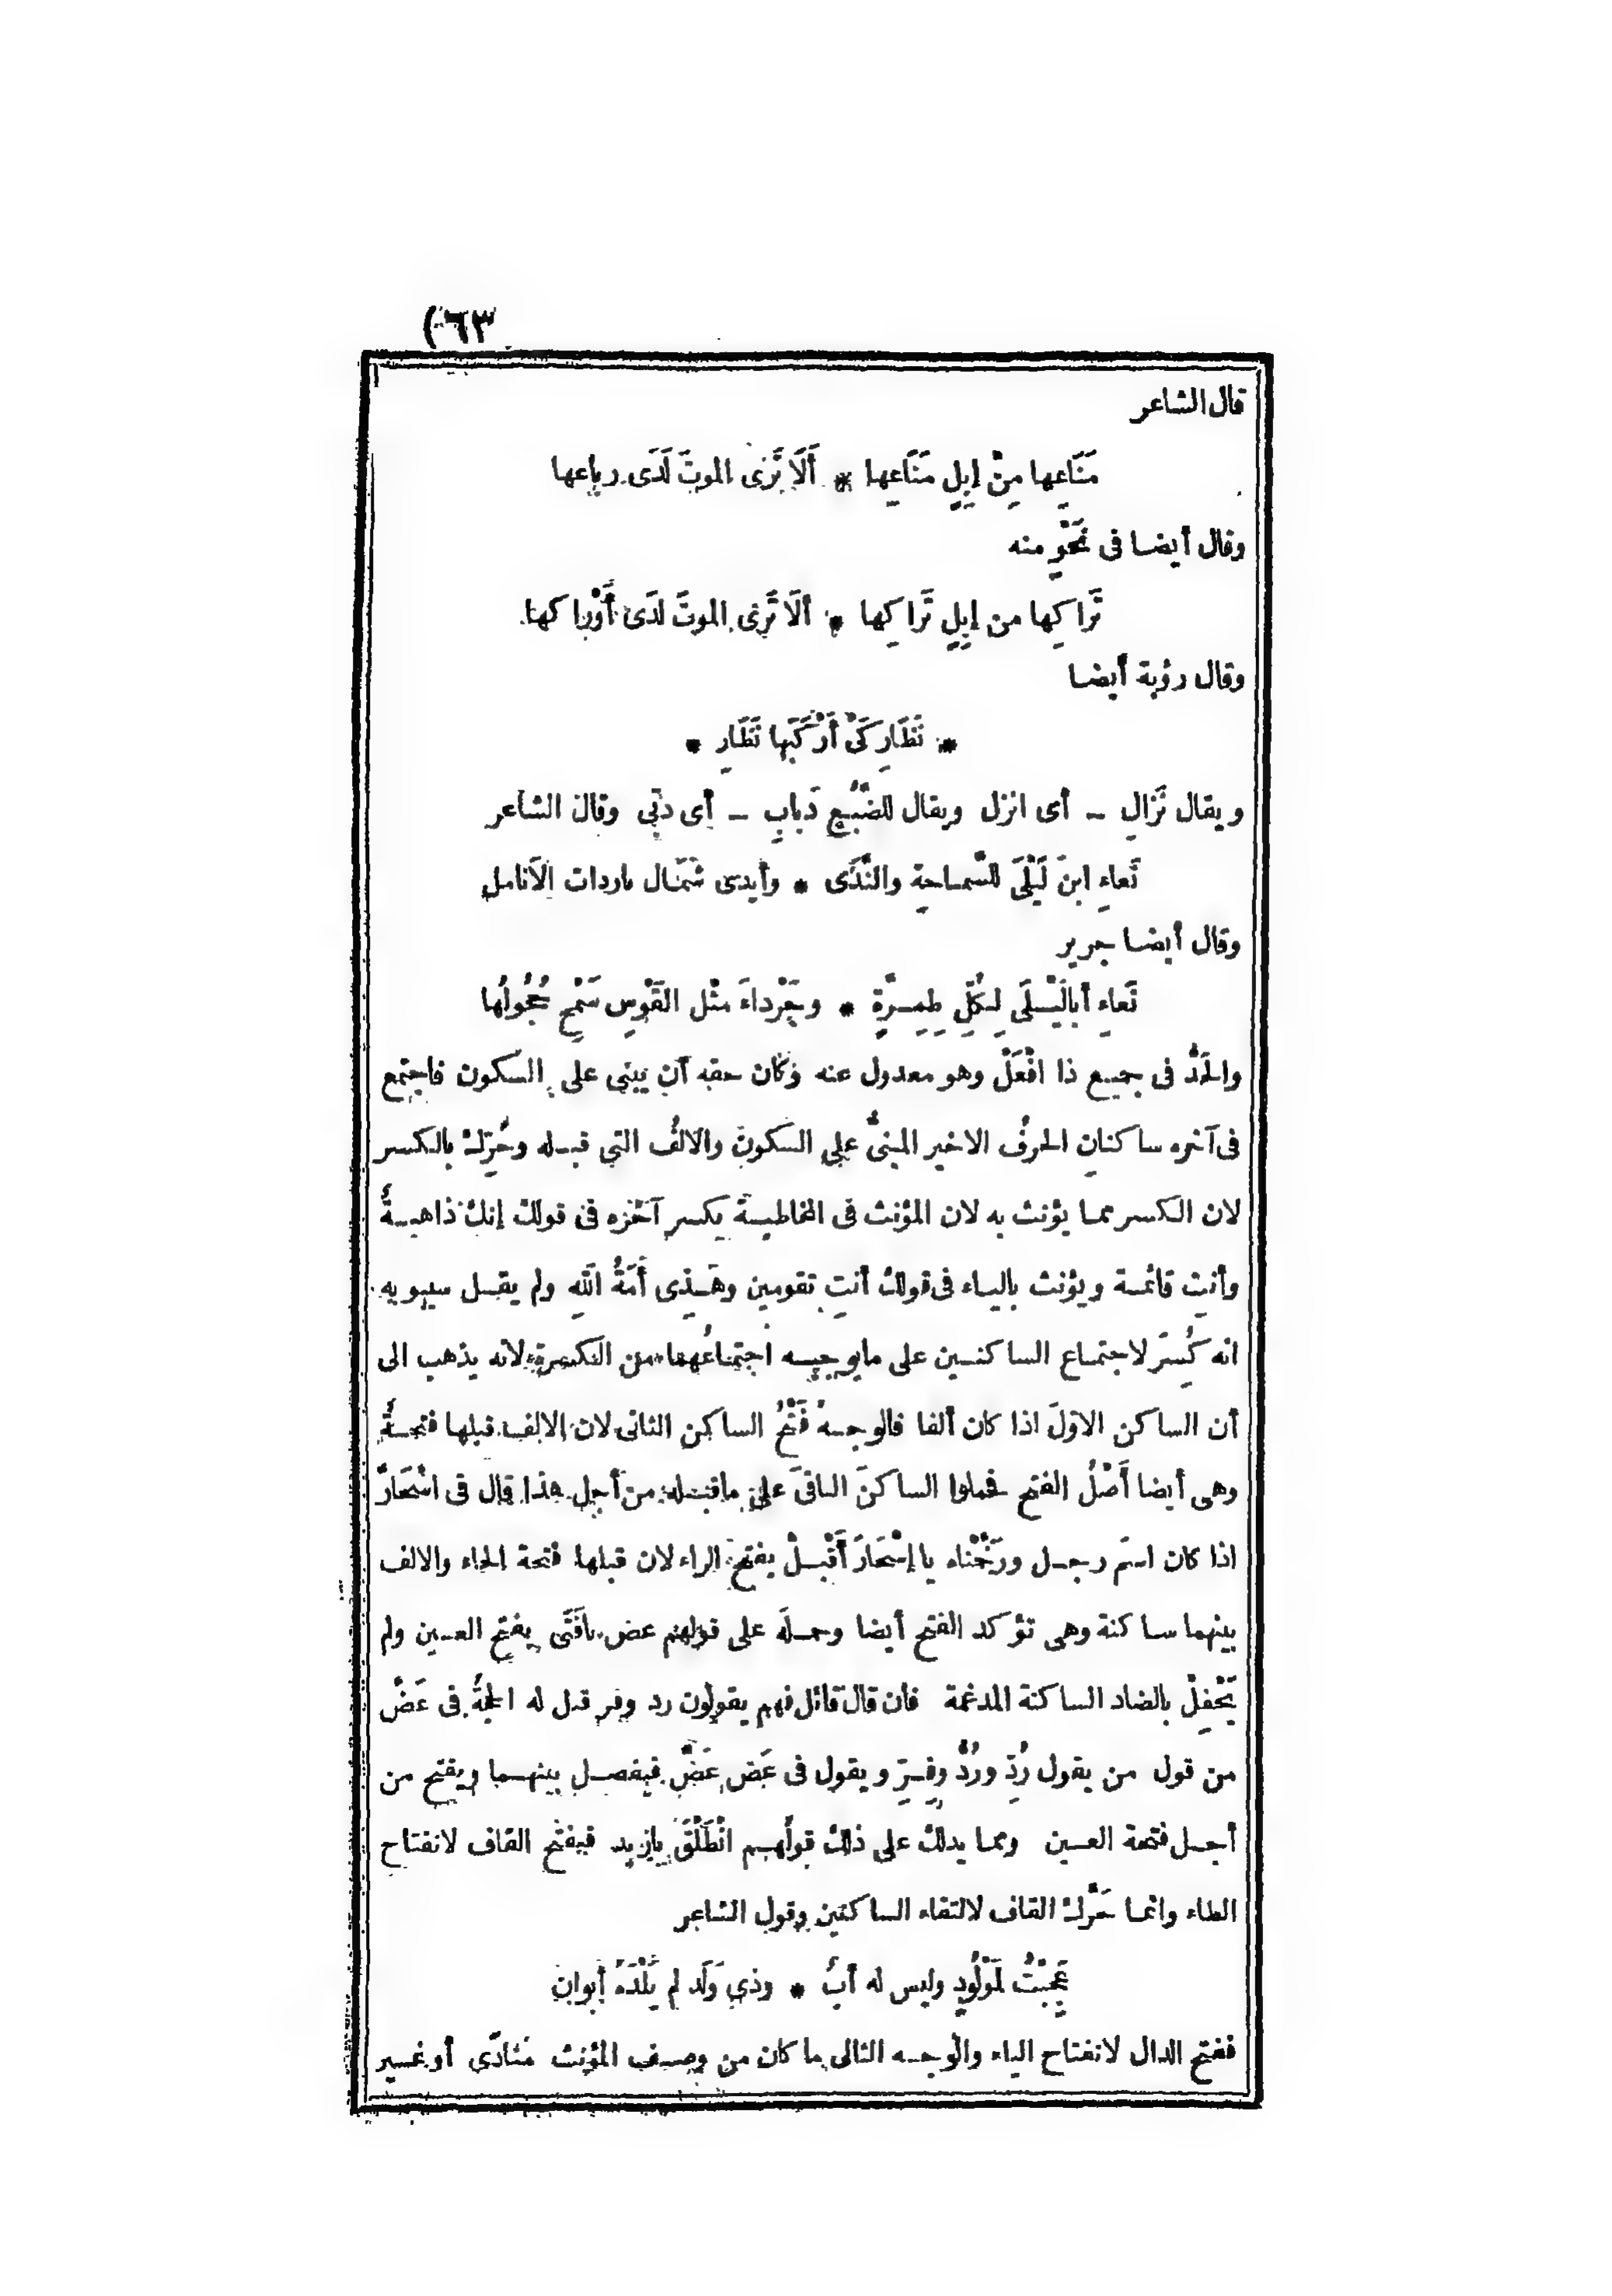 (٦٣
قال الشاعر
مَنَاعِها مِنْ إبِلٍ مَنَاعِها * ألَا تَرَى الموتَ لَدَى رباعها
وقال أيضا فى نَحْوٍ منه
تَراكِها من إبِلٍ تَراكِها * ألَا تَرَى الموتَ لدَى أَوْراكها
وقال رؤبة أيضا
* نَظَارِ كَىْ أَرْكَبَها نَظَارِ *
ويقال نَزالِ – أى انزل ويقال للضَّبُعِ دَبابِ – أى دبّى وقال الشاعر
نَعاءِ ابنَ لَيْلَى للسَّماحةِ والنَّدَى * وأيدى شَمَال باردات الاَنامل
وقال أيضا جرير
نَعاءِ أبالَيْلَى لِكُلِّ طِمِرَّةٍ * وجَرْداءَ مثْل القَوْسِ سَمْحٍ حُجُولُها
والحَدُّ فى جميع ذا افْعَلْ وهو معدول عنه وكان حقه أن يبنى على السكون فاجتمع
فى آخره ساكنانِ الحرفُ الاخير المبنىُّ على السكونِ والالفُ التى قبله وحُرِّكَ بالكسر
لان الكسر مما يؤنث به لان المؤنث فى المخاطبة يكسر آخره فى قولك إنكِ ذاهبةٌ
وأنتِ قائمة ويؤنث بالياء فى قولك أنتِ تقومين وهَذِى أمَةُ اللهِ ولم يقل سيبويه
انه كُسِرَ لاجتماع الساكنين على مايوجبه اجتماعُهما من الكسرة لانه يذهب الى
أن الساكن الاوّلَ اذا كان ألفا فالوجهُ فَتْحُ الساكن الثانى لان الالف قبلها فتحةٌ
وهى أيضا أَصْلُ الفتح فحملوا الساكنَ الباقىَ على ماقبله من أجل هذا قال فى اسْحَارَّ
اذا كان اسمَ رجل ورَخَّمْناه يا إسْحَارَ أَقْبِلْ بفتح الراء لان قبلها فتحة الحاء والالف
بينهما ساكنة وهى تؤكد الفتح أيضا وحملَه على قولهم عض يافَتَى بفتح العين ولم
يَحْفِلْ بالضاد الساكنة المدغمة فان قال قائل فهم يقولون رد وفر قيل له الحجةُ فى عَضَّ
من قول من يقول رُدِّ ورُدُّ وفِرِّ ويقول فى عَضِ عَضَّ فيفصل بينهما ويفتح من
أجل فتحة العين ومما يدلك على ذلك قولُهم انْطَلْقَ يازيد فيفتح القاف لانفتاح
الطاء وانما حَرَّكَ القاف لالتقاء الساكنين وقول الشاعر
عَجِبْتُ لمَوْلُودٍ وليس له أبٌ * وذى وَلَد لم يَلْدَهُ أبوانِ
ففتح الدال لانفتاح الياء والوجه الثانى ما كان من وصف المؤنث مُنادًى أو غير